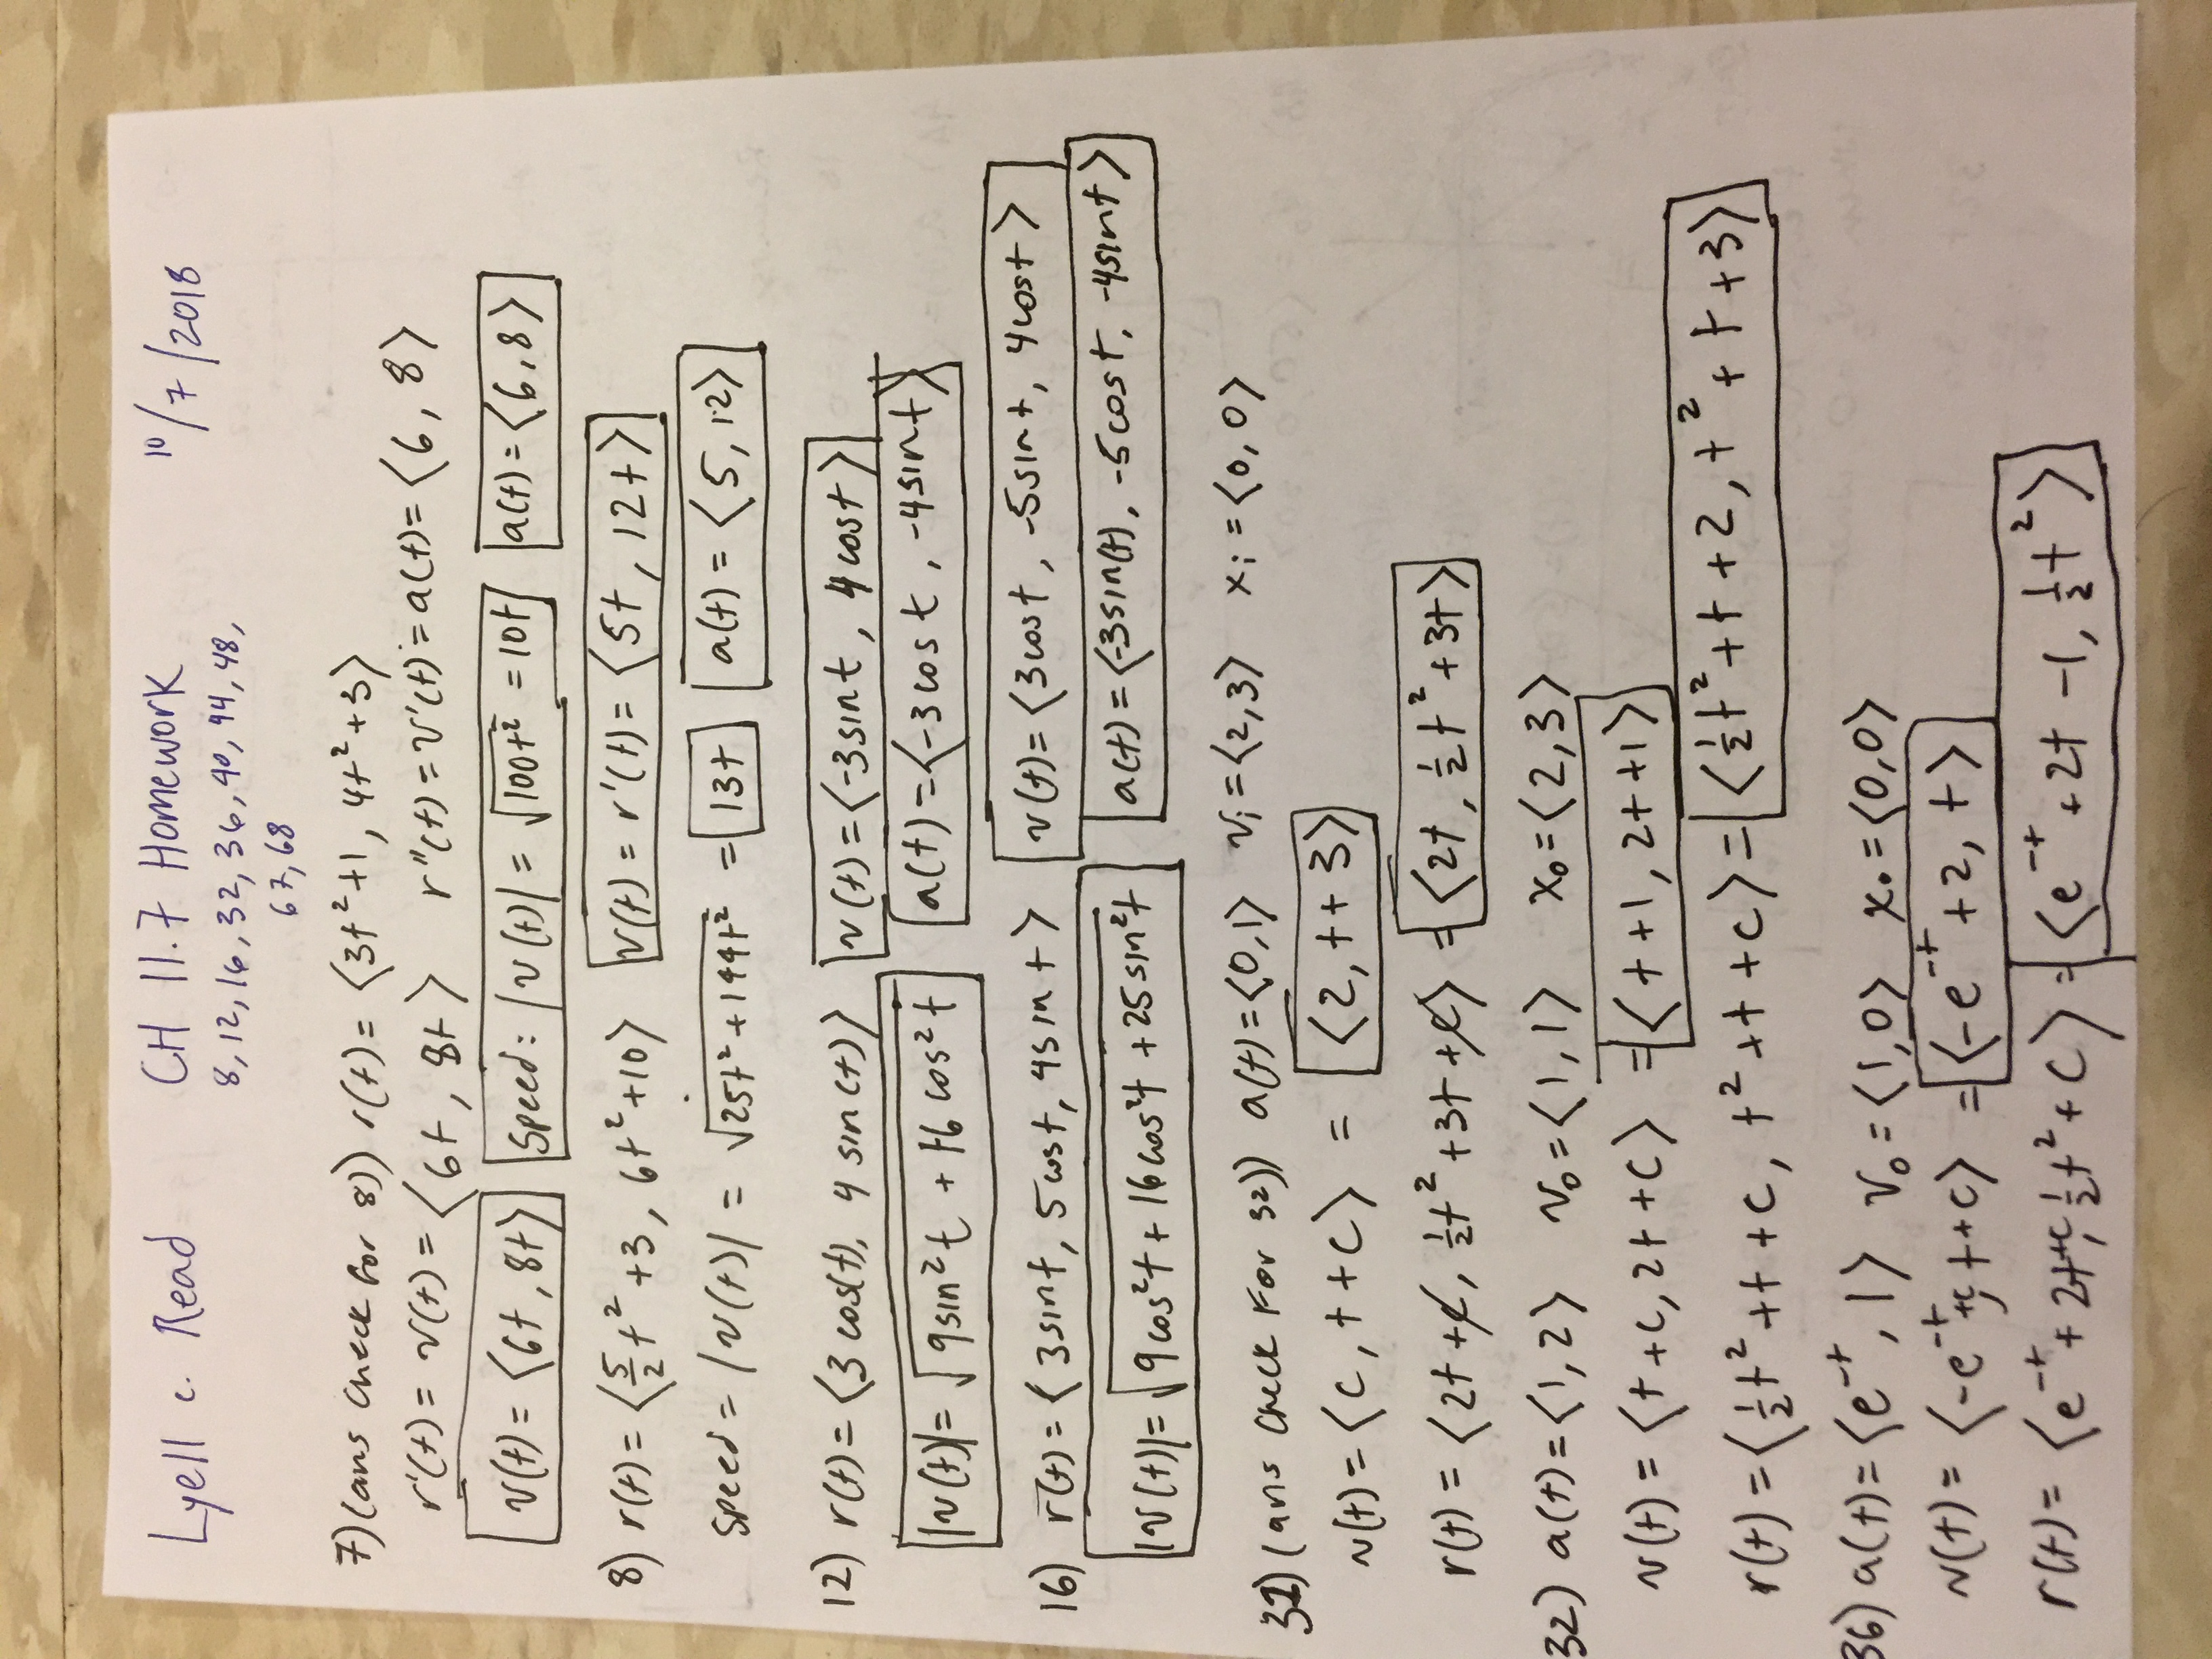 Lyell c. Read CH 11.7 Homework 10/7/2018
8, 12, 16, 32, 36, 40, 44, 48,
67, 68
7) (ans check for 8)) r(t) = ⟨3t²+1, 4t²+3⟩
r'(t) = v(t) = ⟨6t, 8t⟩ r''(t) = v'(t) = a(t) = ⟨6, 8⟩
v(t) = ⟨6t, 8t⟩ Speed: |v(t)| = √100t² = 10t a(t) = ⟨6, 8⟩
8) r(t) = ⟨5/2 t² + 3, 6t² + 10⟩ v(t) = r'(t) = ⟨5t, 12t⟩
speed = |v(t)| = √25t² + 144t² = 13t a(t) = ⟨5, 12⟩
12) r(t) = ⟨3 cos(t), 4 sin(t)⟩ v(t) = ⟨-3sint, 4cost⟩
|v(t)| = √9sin²t + 16cos²t a(t) = ⟨-3cost, -4sint⟩
16) r(t) = ⟨3sint, 5cost, 4sint⟩ v(t) = ⟨3cost, -5sint, 4cost⟩
|v(t)| = √9cos²t + 16cos²t + 25sin²t a(t) = ⟨-3sin(t), -5cost, -4sint⟩
31) (ans check for 32)) a(t) = ⟨0, 1⟩ vi = ⟨2, 3⟩ xi = ⟨0, 0⟩
v(t) = ⟨c, t+c⟩ = ⟨2, t+3⟩
r(t) = ⟨2t + c, ½t² + 3t + c⟩ = ⟨2t, ½t² + 3t⟩
32) a(t) = ⟨1, 2⟩ v₀ = ⟨1, 1⟩ x₀ = ⟨2, 3⟩
v(t) = ⟨t+c, 2t+c⟩ = ⟨t+1, 2t+1⟩
r(t) = ⟨½t² + t + c, t² + t + c⟩ = ⟨½t² + t + 2, t² + t + 3⟩
36) a(t) = ⟨e⁻ᵗ, 1⟩ v₀ = ⟨1, 0⟩ x₀ = ⟨0, 0⟩
v(t) = ⟨-e⁻ᵗ+c, t+c⟩ = ⟨-e⁻ᵗ + 2, t⟩
r(t) = ⟨e⁻ᵗ + 2t+c, ½t² + c⟩ = ⟨e⁻ᵗ + 2t - 1, ½t²⟩